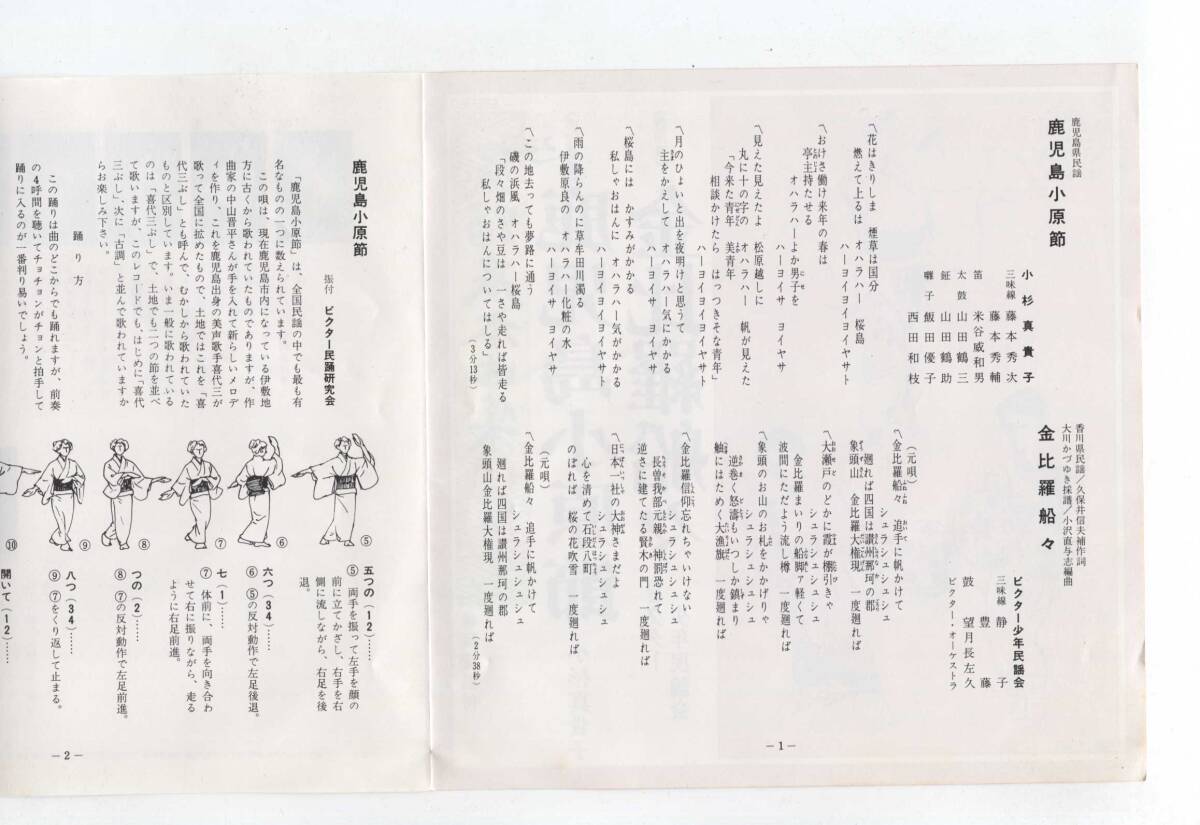 鹿児島県民謡
鹿児島小原節
小杉真貴子
三味線 藤本秀次
藤本秀輔
笛 米谷威和男
太鼓 山田鶴三
鉦 山田鶴助
囃子 飯田優子
西田和枝
〽花はきりしま 煙草は国分
燃えて上るは オハラハー 桜島
ハーヨイヨイヨイヤサット
〽おけさ働け来年の春は
オハラハーよか男子を
亭主持たせる
ハーヨイヤサ ヨイヤサ
〽見えた見えたよ 松原越しに
丸に十の字の オハラハー 帆が見えた
「今来た青年 美青年
相談かけたら はっつきそな青年」
ハーヨイヤサ ヨイヤサ
〽月のひょいと出を夜明けと思うて
主をかえして オハラハー気にかかる
ハーヨイヨイヨイヤサト
〽桜島には かすみがかかる
私しゃおはんに オハラハー気がかかる
ハーヨイヨイヨイヤサト
〽雨の降らんのに草牟田川濁る
伊敷原良の オハラハー化粧の水
ハーヨイヤサ ヨイヤサ
〽この地去っても夢路に通う
磯の浜風 オハラハー桜島
「段々畑のさや豆は 一さや走れば皆走る
私しゃおはんについてはしる」
(3分13秒)
香川県民謡/久保井信夫補作詞
大川かづゆき採譜/小沢直与志編曲
金比羅船々
ビクター少年民謡会
三味線 静子
豊藤
鼓 望月長左久
ビクター・オーケストラ
(元唄)
〽金比羅船々 追手に帆かけて
シュラシュシュシュ
廻れば四国は讃州那珂の郡
象頭山 金比羅大権現 一度廻れば
〽大瀬戸のどかに霞が棚引きゃ
シュラシュシュシュ
金比羅まいりの船脚ァ軽くて
波間にただよう流し樽 一度廻れば
〽象頭のお山のお札をかかげりゃ
シュラシュシュシュ
逆巻く怒濤もいつしか鎮まり
舳にはためく大漁旗 一度廻れば
〽金比羅信仰忘れちゃいけない
シュラシュシュシュ
長曽我部元親 神罰恐れて
逆さに建てたる賢木の門 一度廻れば
〽日本一社の大神さまだよ
シュラシュシュシュ
心を清めて石段八町
のぼれば 桜の花吹雪 一度廻れば
(元唄)
〽金比羅船々 追手に帆かけて
シュラシュシュシュ
廻れば四国は讃州那珂の郡
象頭山金比羅大権現 一度廻れば
(2分38秒)
－1－
鹿児島小原節
振付 ビクター民踊研究会
「鹿児島小原節」は、全国民謡の中でも最も有
名なものの一つに数えられています。
この唄は、現在鹿児島市内になっている伊敷地
方に古くから歌われていたものでありますが、作
曲家の中山晋平さんが手を入れて新らしいメロデ
ィを作り、これを鹿児島出身の美声歌手喜代三が
歌って全国に拡めたもので、土地ではこれを「喜
代三ぶし」とも呼んで、むかしから歌われていた
ものと区別しています。いま一般に歌われている
のは「喜代三ぶし」で、土地でも二つの節を並べ
て歌いますが、このレコードでも、はじめに「喜代
三ぶし」、次に「古調」と並んで歌われていますか
らお楽しみ下さい。
踊り方
この踊りは曲のどこからでも踊れますが、前奏
の4呼間を聴いてチョチョンがチョンと拍手して
踊りに入るのが一番判り易いでしょう。
⑤
⑥
⑦
⑧
⑨
⑩
五つの(12)……
⑤ 両手を振って左手を顔の
前に立てかざし、右手を右
側に流しながら、右足を後
退。
六つ(34)……
⑥ ⑤の反対動作で左足後退。
七(1)……
⑦ 体前に、両手を向き合わ
せて右に振りながら、走る
ように右足前進。
つの(2)……
⑧ ⑦の反対動作で左足前進。
八つ(34)……
⑨ ⑦をくり返して止まる。
開いて(12)……
－2－